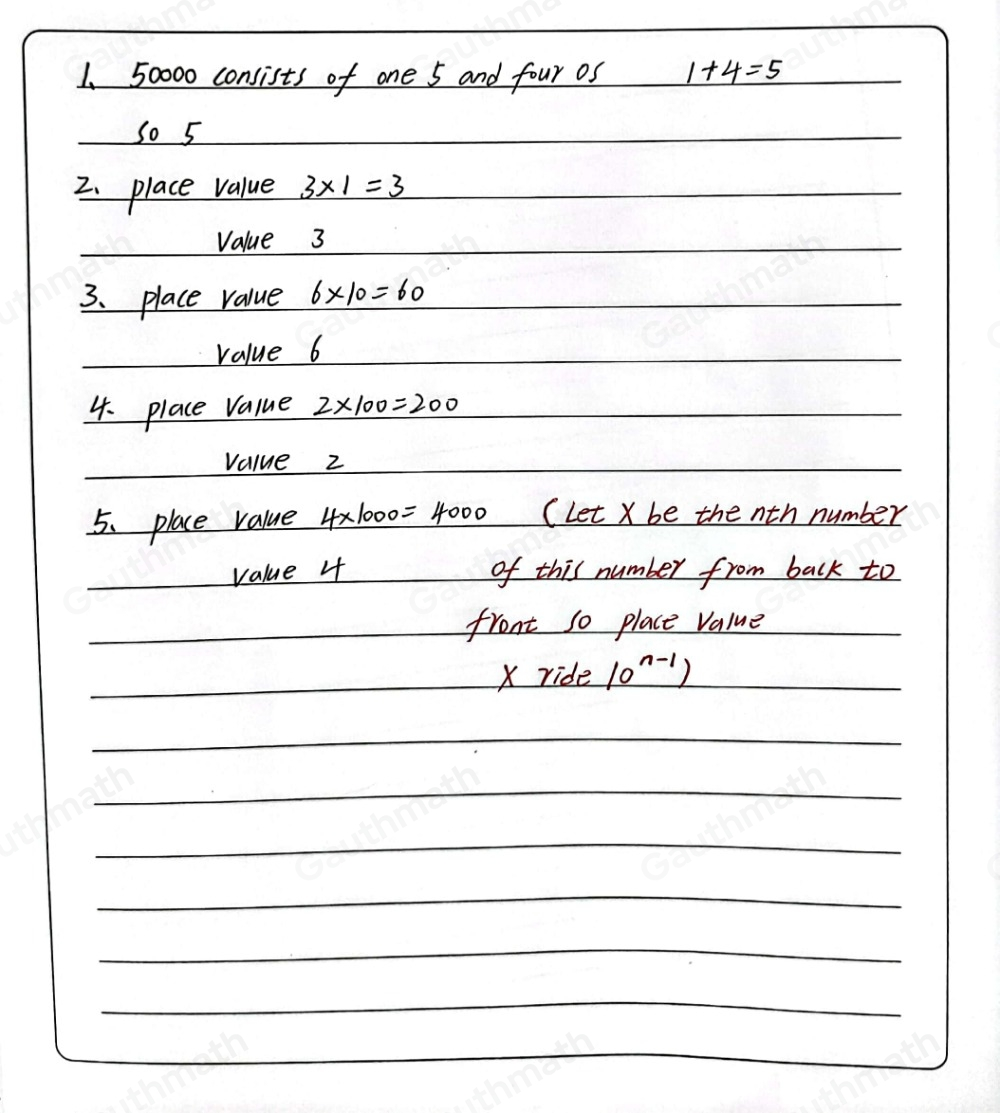 1. 50000 consists of one 5 and four 0s 1+4=5
so 5
2. place value 3×1=3
Value 3
3. place value 6×10=60
value 6
4. place Value 2×100=200
Value 2
5. place value 4×1000=4000 (Let X be the nth number
value 4 of this number from back to
front so place value
X ride 10^(n-1))